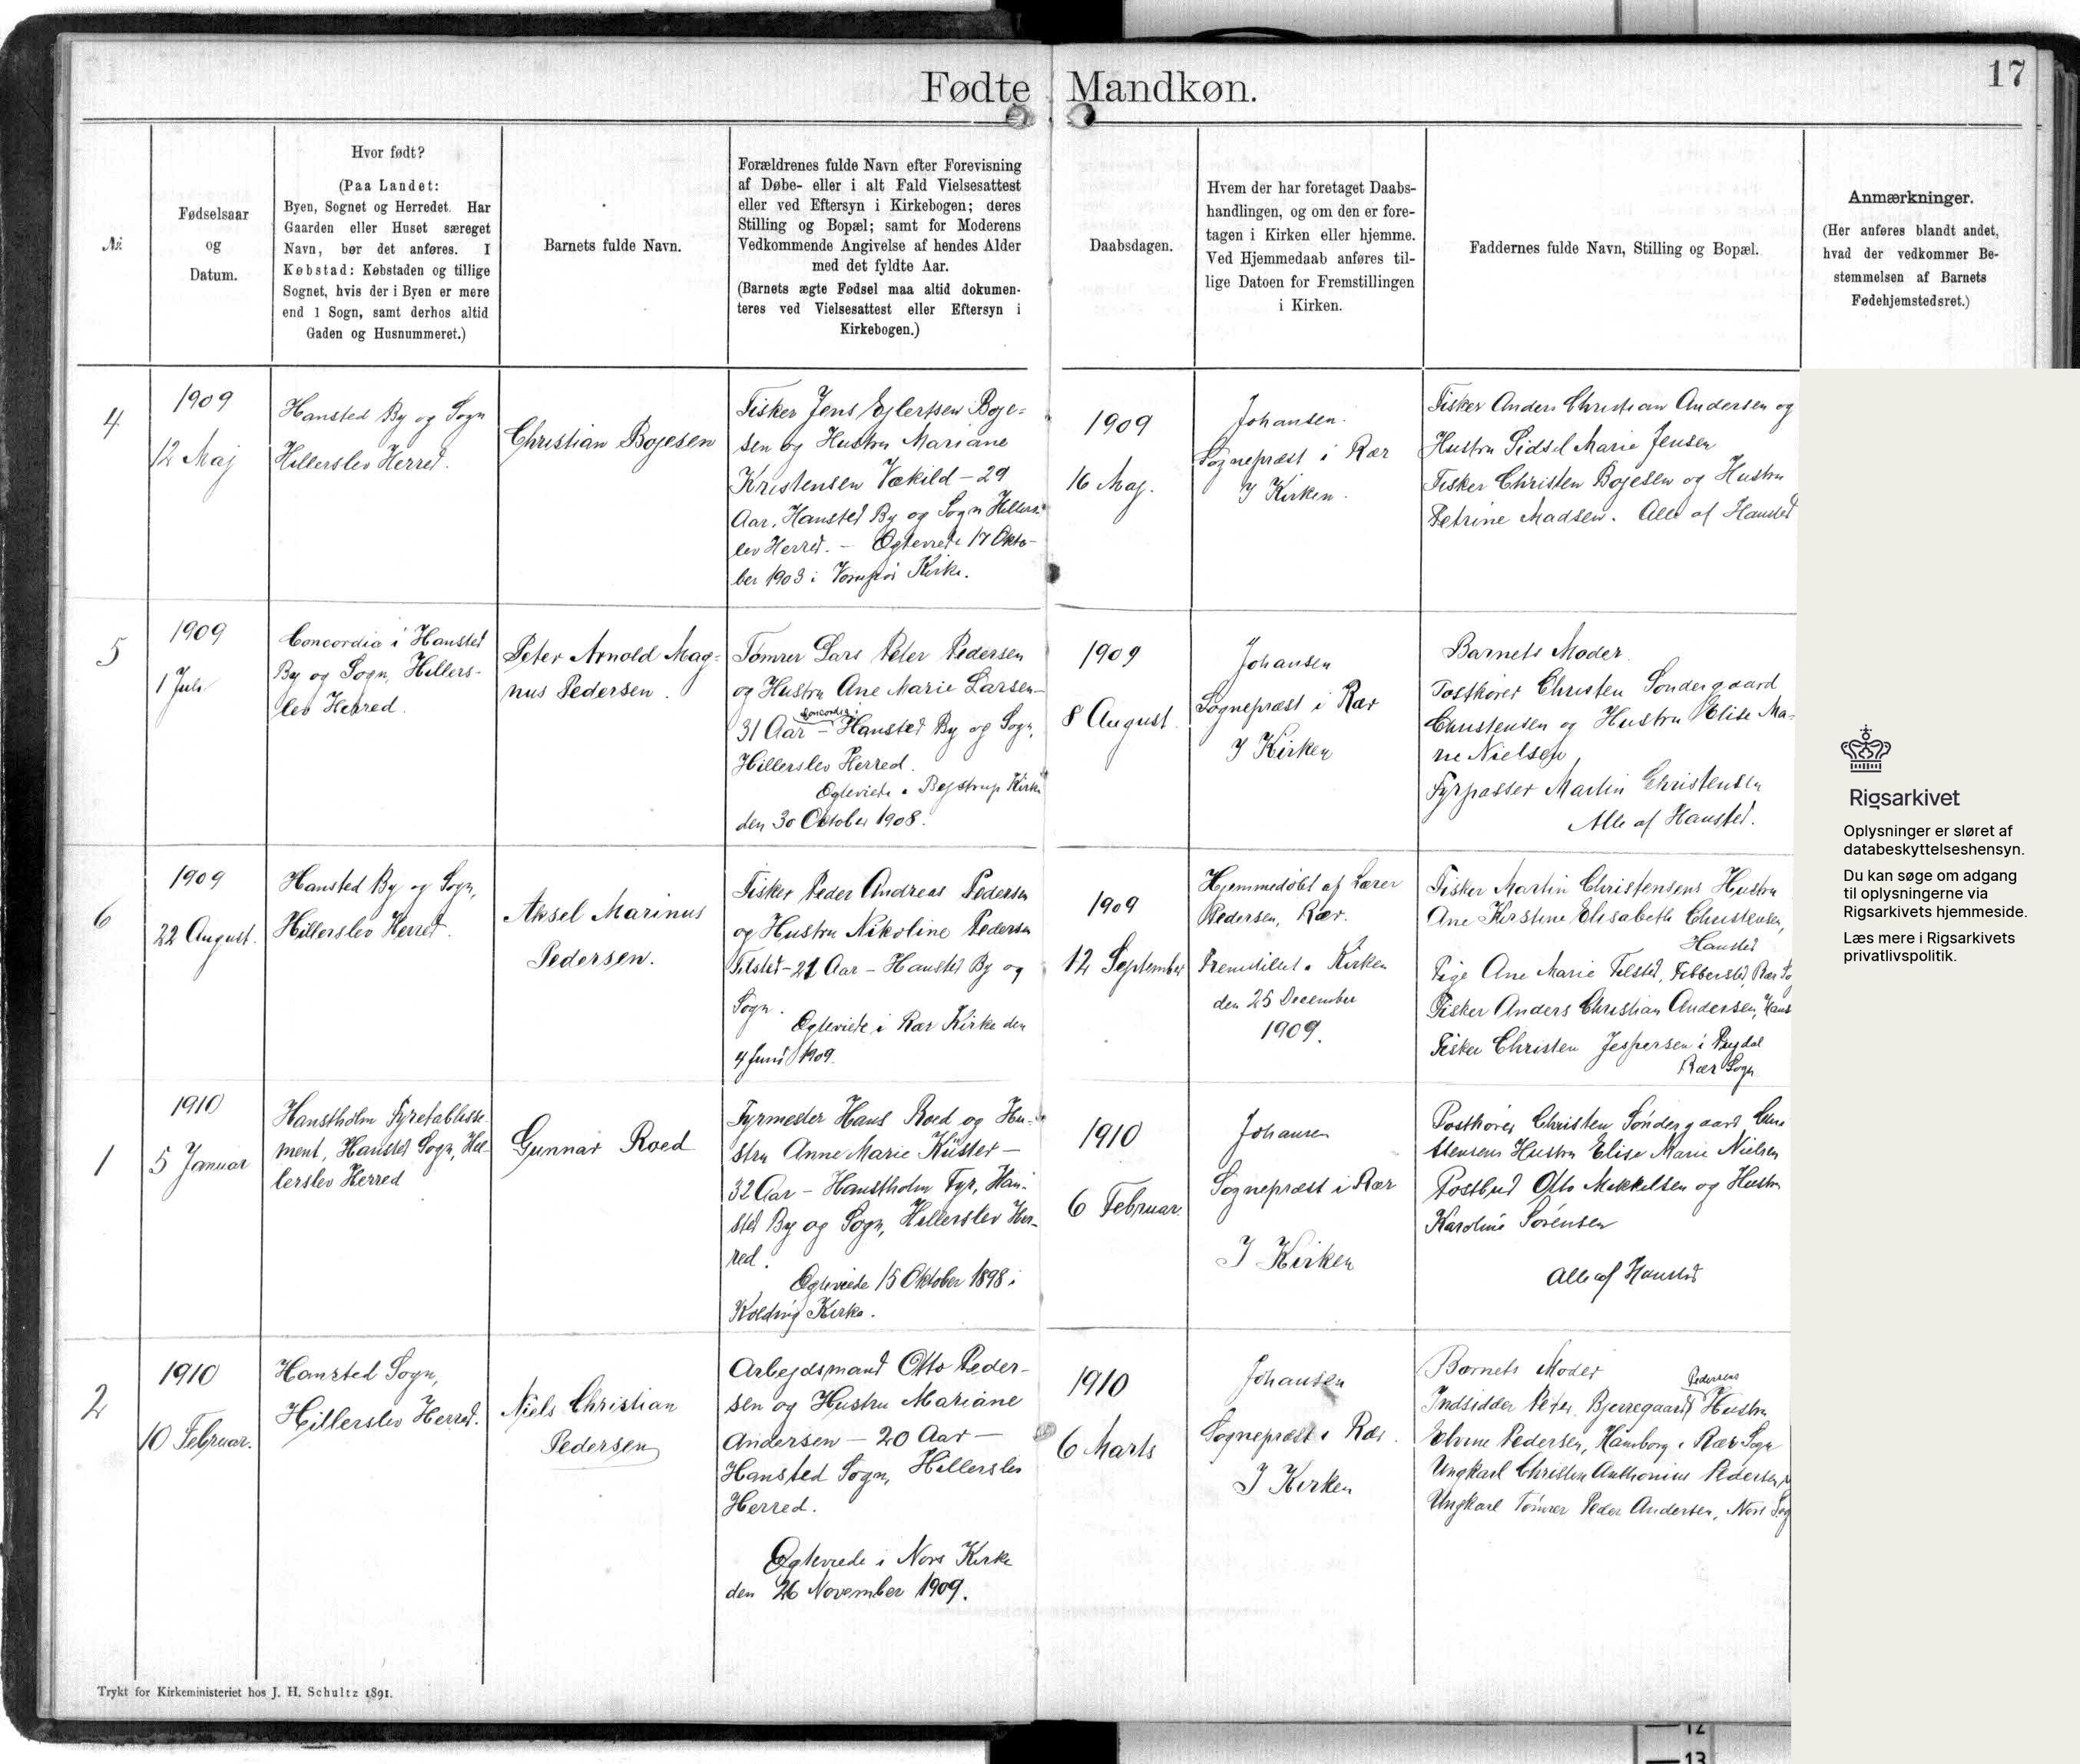 Fødte Mandkøn.
17
Nr.
Fødselsaar
og
Datum.
Hvor født?
(Paa Landet:
Byen, Sognet og Herredet. Har
Gaarden eller Huset særeget
Navn, bør det anføres. I
Købstad: Købstaden og tillige
Sognet, hvis der i Byen er mere
end 1 Sogn, samt derhos altid
Gaden og Husnummeret.)
Barnets fulde Navn.
Forældrenes fulde Navn efter Forevisning
af Døbe- eller i alt Fald Vielsesattest
eller ved Eftersyn i Kirkebogen; deres
Stilling og Bopæl; samt for Moderens
Vedkommende Angivelse af hendes Alder
med det fyldte Aar.
(Barnets ægte Fødsel maa altid dokumen-
teres ved Vielsesattest eller Eftersyn i
Kirkebogen.)
Daabsdagen.
Hvem der har foretaget Daabs-
handlingen, og om den er fore-
tagen i Kirken eller hjemme.
Ved Hjemmedaab anføres til-
lige Datoen for Fremstillingen
i Kirken.
Faddernes fulde Navn, Stilling og Bopæl.
Anmærkninger.
(Her anføres blandt andet,
hvad der vedkommer Be-
stemmelsen af Barnets
Fødehjemstedsret.)
4
1909
12 Maj
Hansted By og Sogn
Hillerslev Herred.
Christian Bojesen
Fisker Jens Ejlertsen Boje-
sen og Hustru Mariane
Kristensen Vækild - 29
Aar. Hansted By og Sogn Hillers-
lev Herred. - Ægteviede 17 Okto-
ber 1903 i Kirke.
1909
16 Maj.
Johansen.
Sognepræst i Rær
I Kirken.
Fisker Anders Christian Andersen og
Hustru Sidsel Marie Jensen
Fisker Christen Bojesen og Hustru
Petrine Madsen. Alle af Hansted
5
1909
1 Juli
Concordia i Hansted
By og Sogn, Hillers-
lev Herred.
Peter Arnold Mag-
nus Pedersen.
Tømrer Lars Peter Pedersen
og Hustru Ane Marie Larsen -
Concordia i
31 Aar - Hansted By og Sogn,
Hillerslev Herred.
Ægteviede i Bejstrup Kirke
den 30 October 1908.
1909
8 August.
Johansen
Sognepræst i Rær
I Kirken
Barnets Moder.
Postkører Christen Søndergaard
Christensen og Hustru Elise Ma-
rie Nielsen
Fyrpasser Martin Christensen
Alle af Hansted.
6
1909
22 August.
Hansted By og Sogn,
Hillerslev Herred.
Aksel Marinus
Pedersen.
Fisker Peder Andreas Pedersen
og Hustru Nikoline Pedersen
Tilsted - 21 Aar - Hansted By og
Sogn.
Ægteviede i Rær Kirke den
4 Juni 1909.
1909
12 September
Hjemmedøbt af Lærer
Pedersen, Rær.
Fremstillet i Kirken
den 25 December
1909.
Fisker Martin Christensens Hustru
Ane Kirstine Elisabeth Christensen,
Hansted
Pige Ane Marie Tilsted, Febbersted, Rær So
Fisker Anders Christian Andersen, Hans
Fisker Christen Jespersen i
Rær Sogn
1
1910
5 Januar
Hanstholm Fyretablisse-
ment, Hansted Sogn, Hil-
lerslev Herred
Gunnar Roed
Fyrmester Hans Roed og Hu-
stru Anne Marie Küster -
32 Aar - Hanstholm Fyr, Han-
sted By og Sogn, Hillerslev Her-
red.
Ægteviede 15 Oktober 1898 i
Kolding Kirke.
1910
6 Februar.
Johansen
Sognepræst i Rær
I Kirken
Postkører Christen Søndergaard Chri
stensens Hustru Elise Marie Nielsen
Postbud Otto Mikkelsen og Hustru
Karoline Sørensen
Alle af Hansted
2
1910
10 Februar.
Hansted Sogn,
Hillerslev Herred.
Niels Christian
Pedersen
Arbejdsmand Otto Peder-
sen og Hustru Mariane
Andersen - 20 Aar -
Hansted Sogn, Hillerslev
Herred.
Ægteviede i Nors Kirke
den 26 November 1909.
1910
6 Marts
Johansen
Sognepræst i Rær.
I Kirken
Barnets Moder
Pedersens
Indsidder Peter Bjerregaard Hustru
Elvine Pedersen, Hamborg i Rær Sogn
Ungkarl Christen Anthonius Pedersen,
Ungkarl Tømrer Peder Andersen, Nors Sog
Trykt for Kirkeministeriet hos J. H. Schultz 1891.
Rigsarkivet
Oplysninger er sløret af
databeskyttelseshensyn.
Du kan søge om adgang
til oplysningerne via
Rigsarkivets hjemmeside.
Læs mere i Rigsarkivets
privatlivspolitik.
12
13